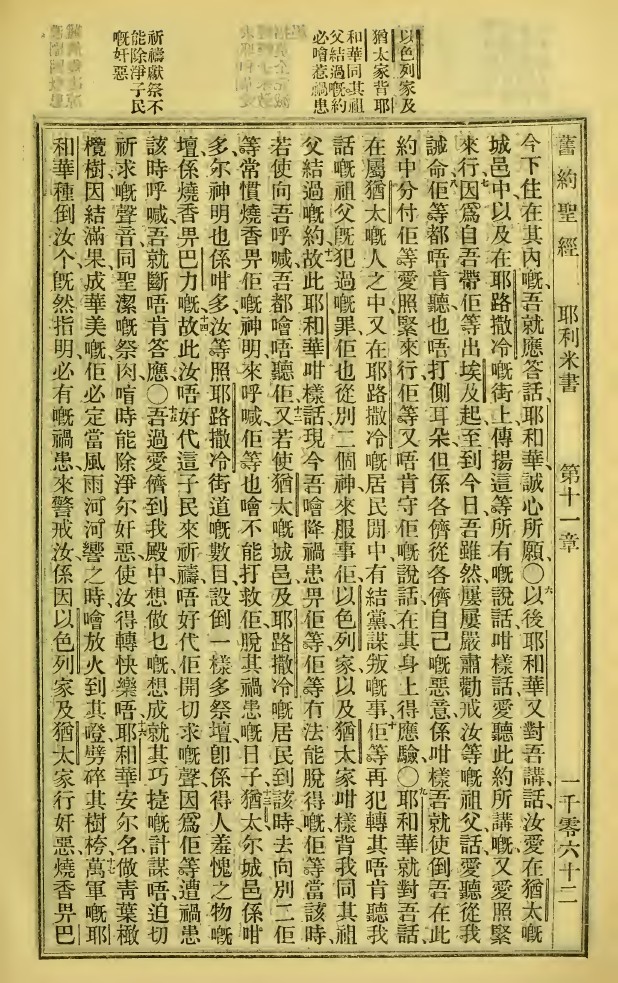 舊約聖經 耶利米書 第十一章 一千零六十二
以色列家及
猶太家背耶
和華同其祖
父結過嘅約
必噲惹禍患
祈禱獻祭不
能除淨子民
嘅奸惡
今下住在其內嘅、吾就應答話、耶和華誠心所願、〇六以後耶和華又對吾講話、汝愛在猶太嘅
城邑中、以及在耶路撒冷嘅街上傳揚這等所有嘅說話、咁樣話、愛聽此約所講嘅、又愛照緊
來行、七因爲自吾帶佢等出埃及起、至到今日、吾雖然屢屢嚴肅勸戒汝等嘅祖父話、愛聽從我
誡命、八佢等都唔肯聽也唔打側耳朵、但係各儕從各儕自己嘅惡意、係咁樣吾就使倒吾在此
約中分付佢等愛照緊來行、佢等又唔肯守佢嘅說話、在其身上得應驗、〇九耶和華就對吾話、
在屬猶太嘅人之中、又在耶路撒冷嘅居民閒中、有結黨謀叛嘅事、十佢等再犯轉其唔肯聽我
話嘅祖父旣犯過嘅罪、佢也從別二個神來服事佢、以色列家以及猶太家、咁樣背我同其祖
父結過嘅約、十一故此耶和華咁樣話、現今吾噲降禍患畀佢等、佢等有法能脫得嘅、佢等當該時
若使向吾呼喊、吾都噲唔聽佢、十二又若使猶太嘅城邑及耶路撒冷嘅居民、到該時去向別二佢
等常慣燒香畀佢嘅神明來呼喊、佢等也噲不能打救佢脫其禍患嘅日子、十三猶太尔城邑係咁
多、尔神明也係咁多、汝等照耶路撒冷街道嘅數目、設倒一樣多祭壇、卽係得人羞愧之物嘅
壇、係燒香畀巴力嘅、十四故此汝唔好代這子民來祈禱、唔好代佢開切求嘅聲、因爲佢等遭禍患
該時呼喊、吾就斷唔肯答應、〇十五吾過愛儕到我殿中想做乜嘅、想成就其巧㨗嘅計謀唔、迫切
祈求嘅聲音同聖潔嘅祭肉、啀時能除淨尔奸惡、使汝得轉快樂唔、十六耶和華安尔名做青葉橄
欖樹、因結滿果成華美嘅、佢必定當風雨河河響之時、噲放火到其磴、劈碎其樹桍、十七萬軍嘅耶
和華種倒汝个、旣然指明必有嘅禍患來警戒汝、係因以色列家及猶太家行奸惡、燒香畀巴